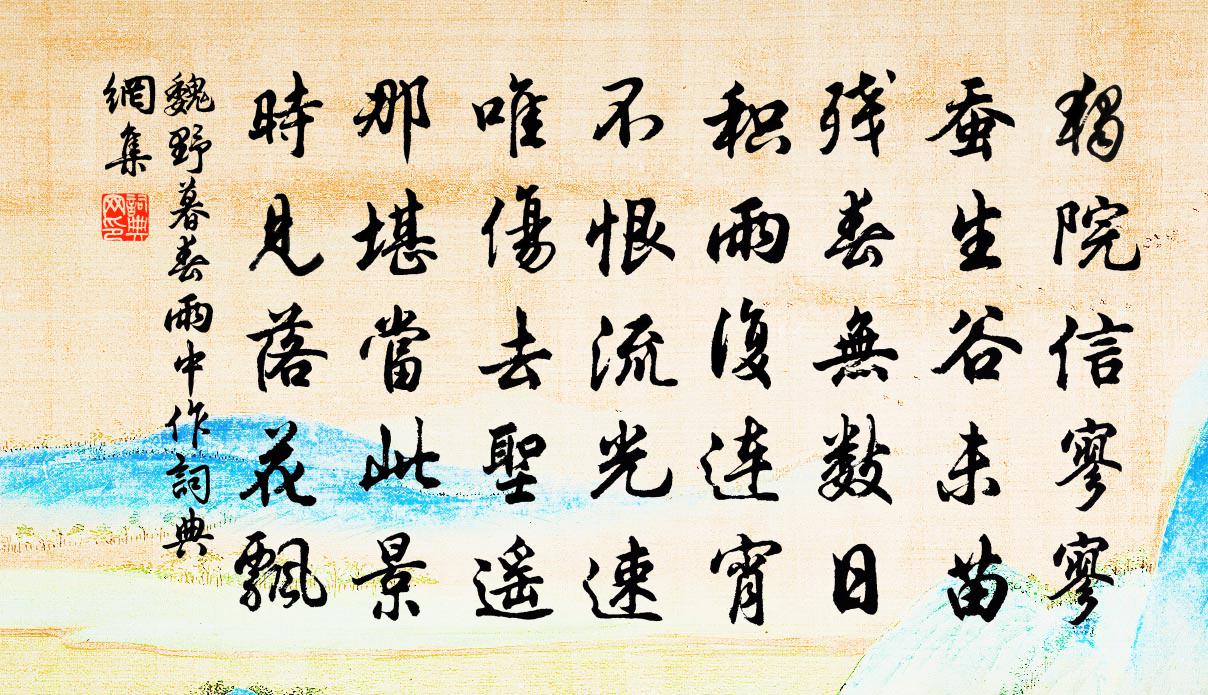 独院信寥寥
蚕生谷未苗
残春無數日
积雨復连宵
不恨流光速
唯傷去聖遥
那堪當此景
時見落花飄
魏野暮春雨中作詞典
網集
詞典
网印